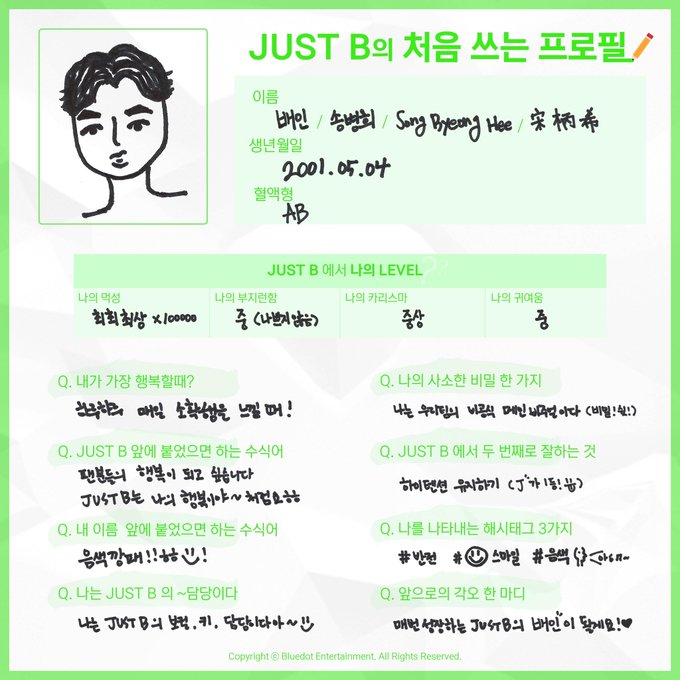 JUST B의 처음 쓰는 프로필
이름
배인 / 송병희 / Song Byeong Hee / 宋 柄 希
생년월일
2001.05.04
혈액형
AB
JUST B 에서 나의 LEVEL
나의 먹성
최최최상 x100000
나의 부지런함
중 (나쁘지않음)
나의 카리스마
중상
나의 귀여움
중
Q. 내가 가장 행복할때?
하루하루 매일 소확행을 느낄 때!
Q. 나의 사소한 비밀 한 가지
나는 우리팀의 비공식 메인비주얼이다 (비밀!쉿!)
Q. JUST B 앞에 붙었으면 하는 수식어
팬분들의 행복이 되고 싶습니다
JUST B는 나의 행복이야~ 처럼요ㅎㅎ
Q. JUST B 에서 두 번째로 잘하는 것
하이텐션 유지하기 (J가 1등!)
Q. 내 이름 앞에 붙었으면 하는 수식어
음색깡패!!ㅎㅎ!
Q. 나를 나타내는 해시태그 3가지
#반전 # 스마일 #음색
Q. 나는 JUST B 의 ~담당이다
나는 JUST B 의 보컬, 키, 담당이다아~
Q. 앞으로의 각오 한 마디
매번 성장하는 JUST B의 "배인"이 될게요!♥
Copyright ⓒ Bluedot Entertainment. All Rights Reserved.